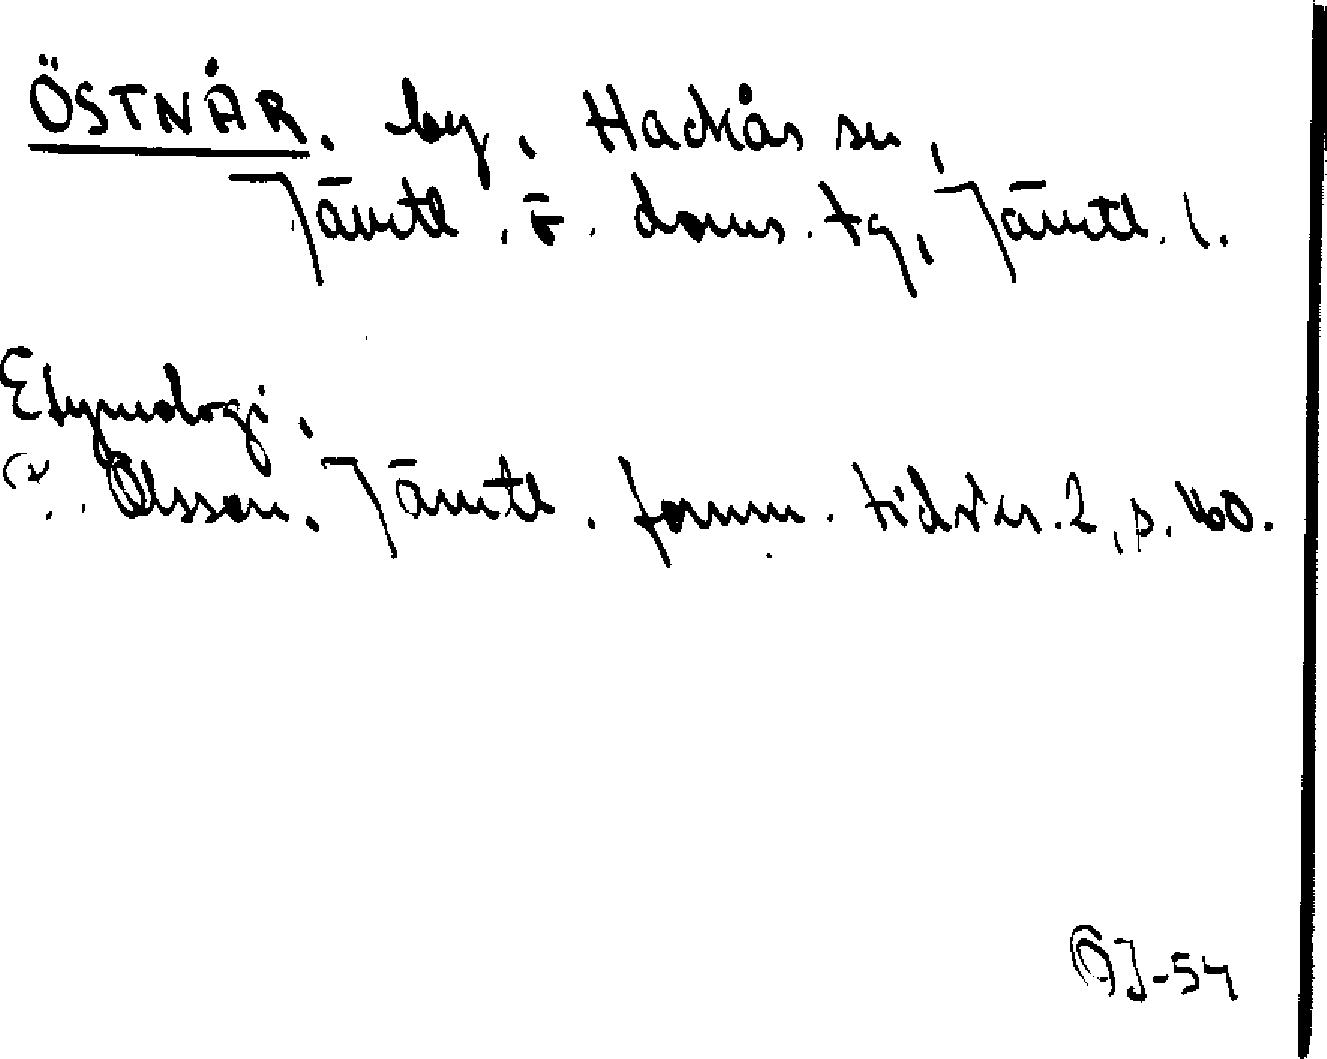 ÖSTNÅR, by, Hackås sn,
Jämtl. ö. doms. tg, Jämtl. l.
Etymologi,
Olsson, Jämtl. fornm. tidskr. 2, s. 160.
ÖJ-54